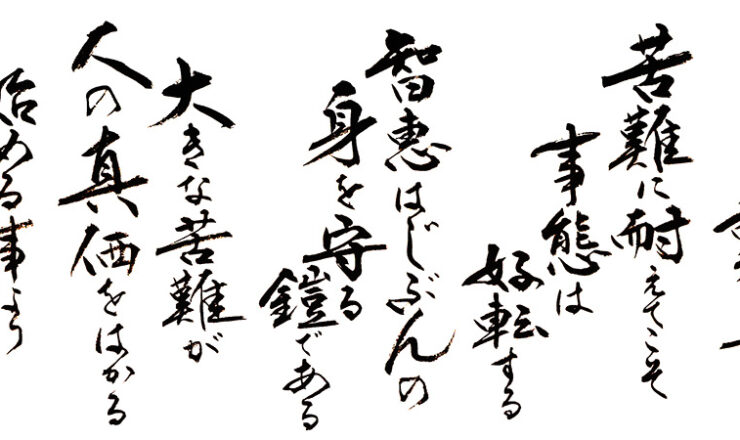 苦難に耐えてこそ
事態は
好転する
智恵はじぶんの
身を守る
鎧である
大きな苦難が
人の真価をはかる
める事より